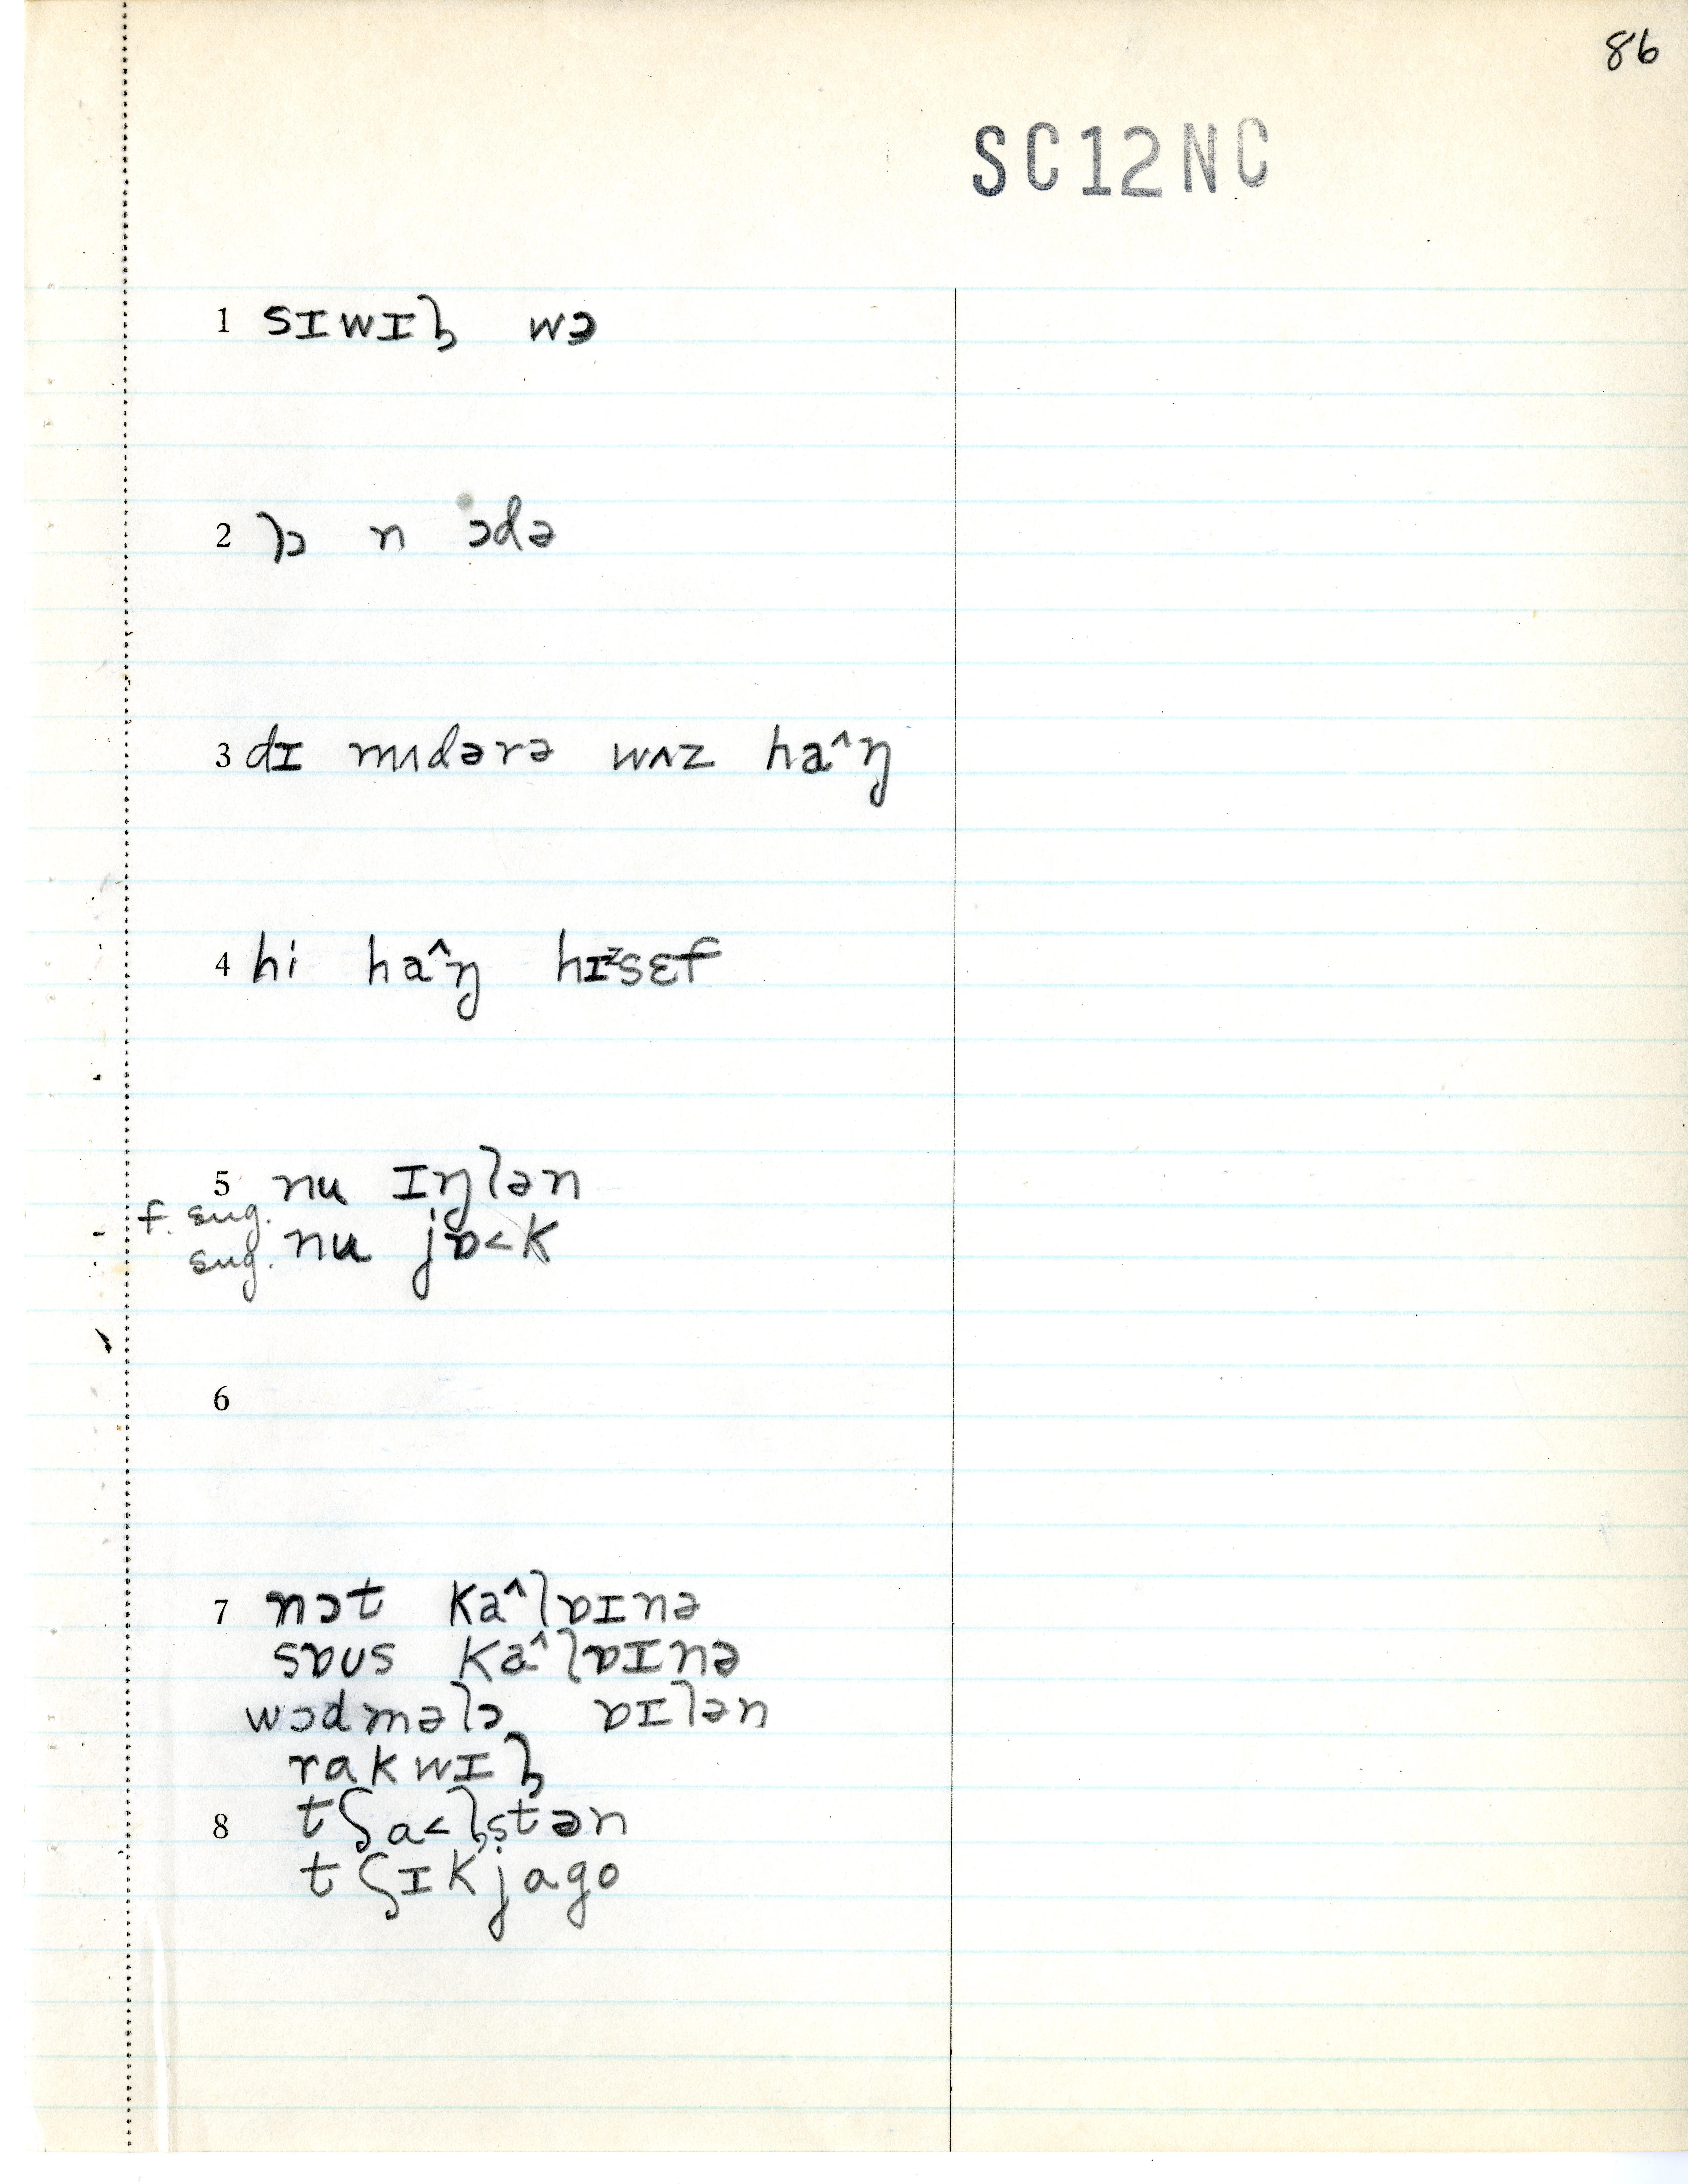 86
SC12NC
1 sɪwɪl̡ wɔ
2 lɔ n ɔdə
3 dɪ mʌdərə wʌz ha^ŋ
4 hi ha^ŋ hɪᶻsɛf
5 nu ɪŋlən
f. sug.
nu jɒ<k
sug.
6
7 nɔt ka^lɒɪnə
sɒʊs ka^lɒɪnə
wɔdməlɔ ɒɪlən
rakwɪl̡
8 tʃa<l̡stən
tʃɪkjago